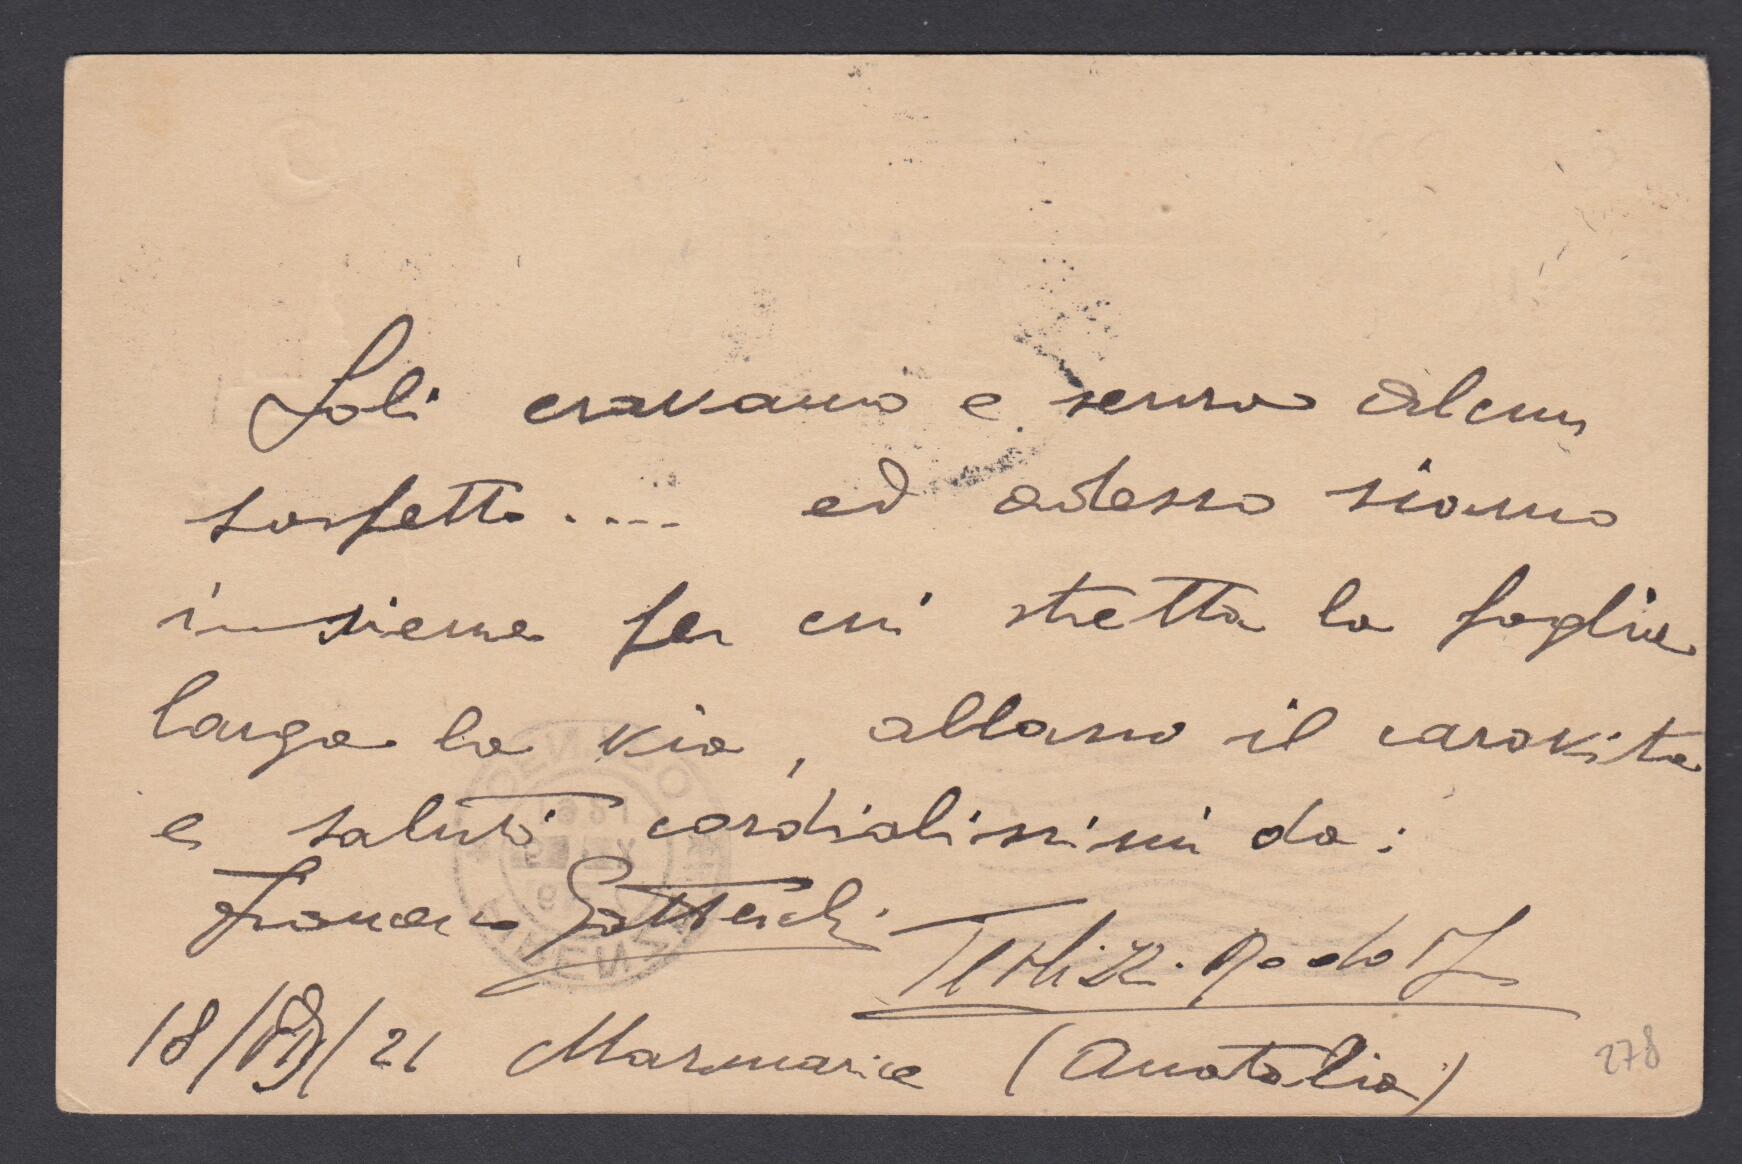 Soli eravamo e senza alcun
sospetto.... ed adesso siamo
insieme per cui stretta la foglia
larga la via, abbasso il carovita
e saluti cordialissimi da:
Francesco Rodolfo
18/ /21 Marmarice (Anatolia)
278